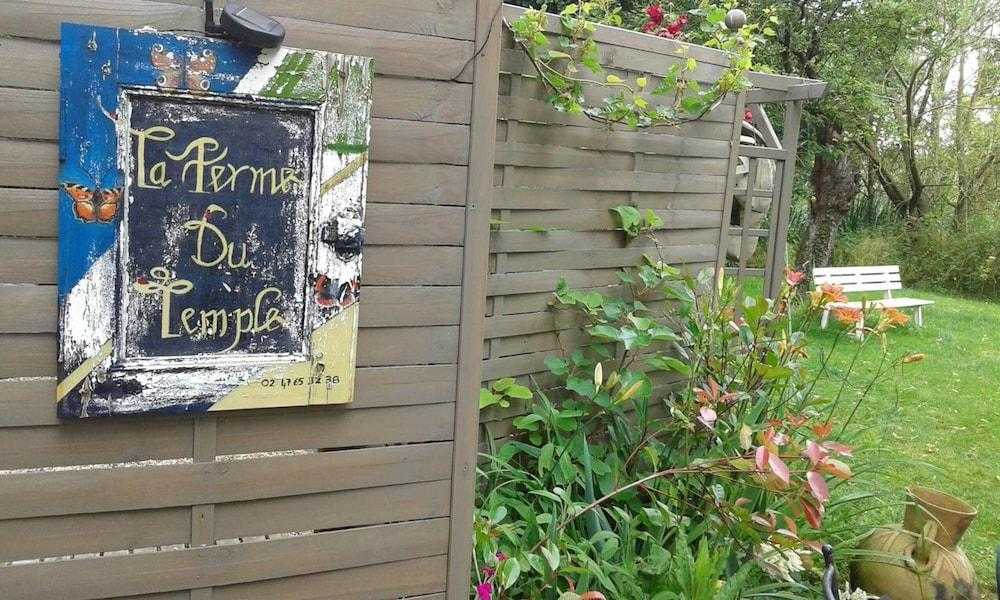 La Ferme
Du
Temple
02 47 65 32 38